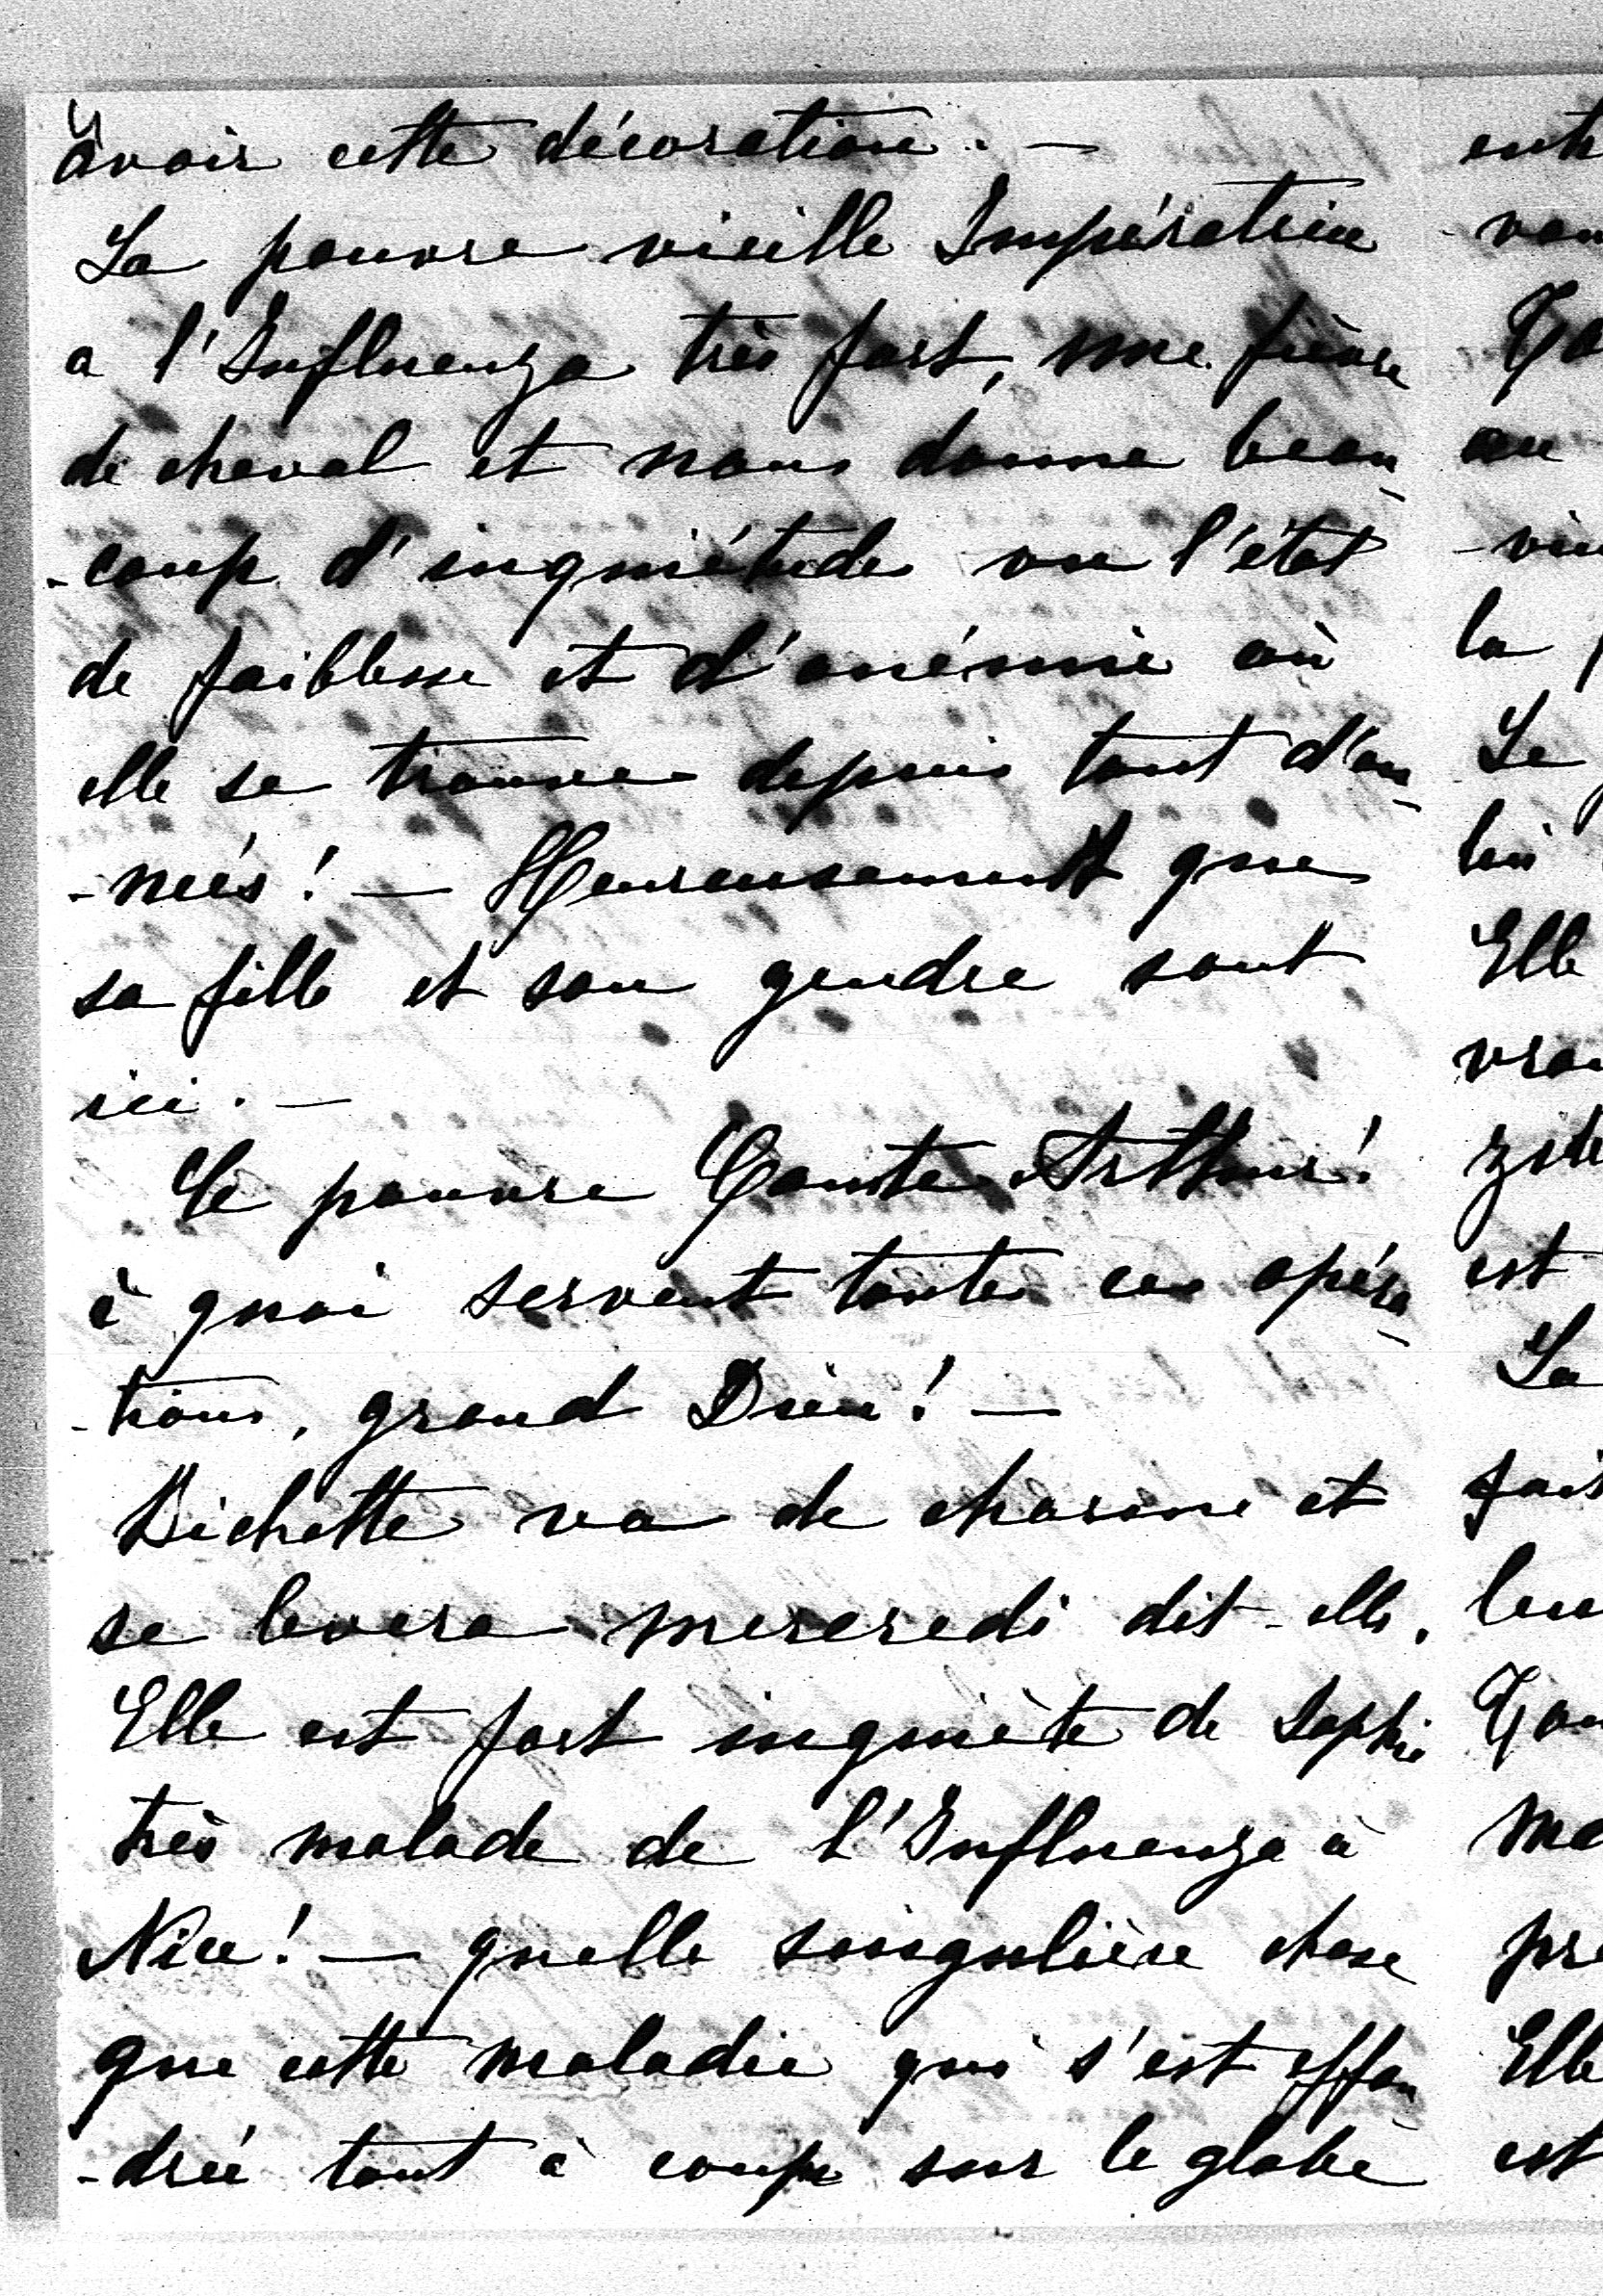 avoir cette décoration. —
La pauvre vieille Impératrice
a l'Influenza très fort, une fièvre
de cheval et nous donne beau-
-coup d'inquiétude vu l'état
de faiblesse et d'anémie où
elle se trouve depuis tant d'an-
-neés! — Heureusement que
sa fille et son gendre sont
ici. —
Ce pauvre Comte Arthur!
à quoi servent toutes ces opéra-
-tions, grand Dieu! —
Bichette va de charme et
se levera mercredi dit-elle.
Elle est fort inquiète de Sophie
très malade de l'Influenza à
Nice! — quelle singulière chose
que cette maladie qui s'est effon-
-drée tout à coup sur le globe
la
Le
Elle
est
La
Elle
est